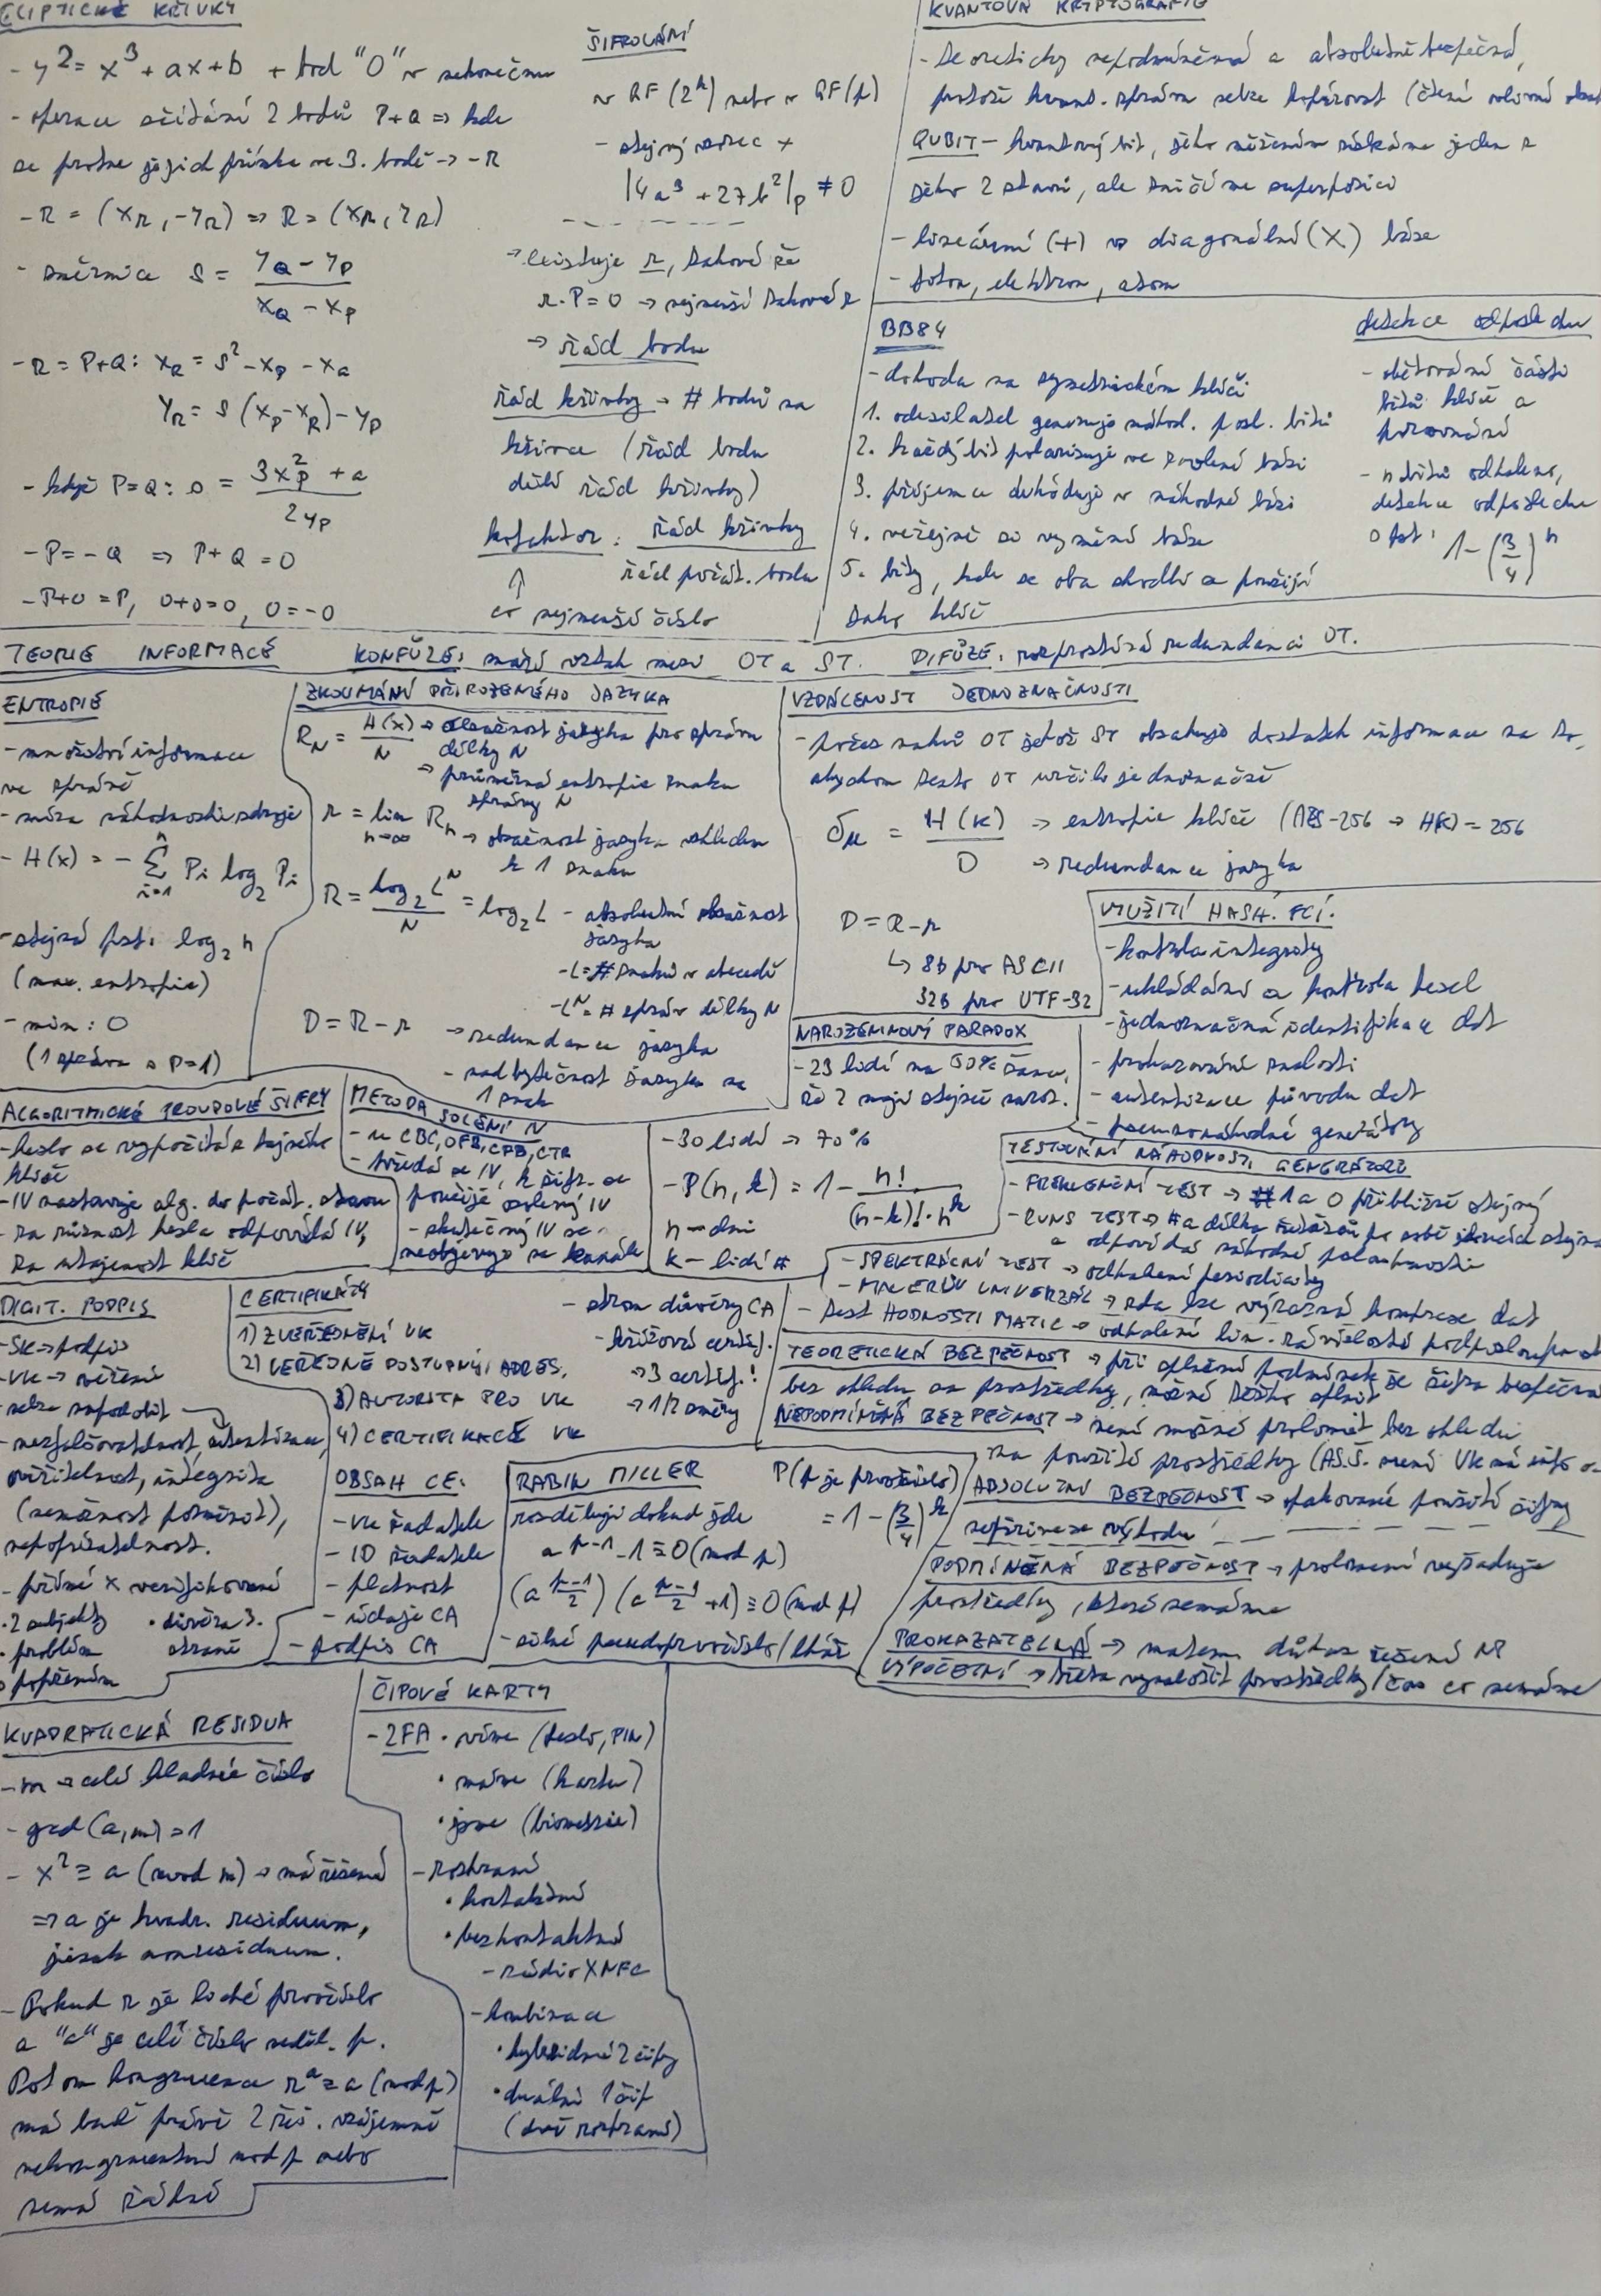 ELIPTICKÉ KŘIVKY
- y² = x³ + ax + b + bod "0" v nekonečnu
- operace sčítání 2 bodů P+Q => kde
se protne jejich přímka ve 3. bodě -> -R
-R = (x_R, -y_R) => R = (x_R, y_R)
- směrnice s = (y_Q - y_P) / (x_Q - x_P)
- R = P+Q: x_R = s² - x_P - x_Q
y_R = s(x_P - x_R) - y_P
- když P=Q: s = (3x_P² + a) / 2y_P
- P = -Q => P + Q = 0
- P+0 = P, 0+0=0, 0=-0
ŠIFROVÁNÍ
v GF(2^k) nebo v GF(p)
- stejný vzorec +
|4a³ + 27b²|_p ≠ 0
-> existuje r, takové že
r·P = 0 -> nejmenší takové r
-> řád bodu
řád křivky -> # bodů na
křivce (řád bodu
dělí řád křivky)
kofaktor: řád křivky / řád počát. bodu
↑
co nejmenší číslo
KVANTOVÁ KRYPTOGRAFIE
- teoreticky nepodmíněná a absolutně bezpečná,
protože kvant. zprávu nelze kopírovat (čtení ovlivní
QUBIT - kvantový bit, jeho měřením získáme jeden z
jeho 2 stavů, ale zničíme superpozici
- lineární (+) vs diagonální (X) báze
- foton, elektron, atom
BB84
- dohoda na symetrickém klíči
1. odesílatel generuje náhod. posl. bitů
2. každý bit polarizuje ve zvolené bázi
3. příjemce dekóduje v náhodné bázi
4. veřejně si vymění báze
5. bity, kde se oba shodli se použijí
jako klíč
detekce odposlechu
- obětování části
bitů klíče a
porovnání
- n bitů odhaleno,
detekce odposlechu
s pst: 1 - (3/4)^n
TEORIE INFORMACE
KONFÚZE: maří vztah mezi OT a ŠT. DIFÚZE: rozprostírá redundanci OT.
ENTROPIE
- množství informace
ve zprávě
- míra náhodnosti zdroje
- H(x) = - Σ_{i=1}^{n} P_i log₂ P_i
- stejná pst: log₂ n
(max. entropie)
- min: 0
(1 zpráva s P=1)
ZKOUMÁNÍ PŘIROZENÉHO JAZYKA
R_N = H(x)/N -> obsažnost jazyka pro zprávu
délky N
-> průměrná entropie znaku
zprávy N
r = lim_{n->∞} R_n -> obsažnost jazyka vzhledem
k 1 znaku
R = log₂ L^N / N = log₂ L - absolutní obsažnost
jazyka
- L = # znaků v abecedě
- L^N = # zpráv délky N
D = R - r -> redundance jazyka
- nadbytečnost jazyka na
1 znak
VZDÁLENOST JEDNOZNAČNOSTI
- počet znaků OT jehož ŠT obsahuje dostatek informace na to,
abychom tento OT určili jednoznačně
δ_u = H(K) / D -> entropie klíče (AES-256 -> H(K) = 256
-> redundance jazyka
D = R - r
↳ 8b pro ASCII
32b pro UTF-32
VYUŽITÍ HASH. FCÍ.
- kontrola integrity
- ukládání a kontrola hesel
- jednoznačná identifikace dat
- prokazování znalosti
- autentizace původu dat
- pseudonáhodné generátory
NAROZENINOVÝ PARADOX
- 23 lidí na 50% šanci,
že 2 mají stejné naroz.
- 30 lidí => 70%
- P(n, k) = 1 - n! / ((n-k)!·n^k)
n - dní
k - lidí #
ALGORITMICKÉ PROUDOVÉ ŠIFRY
- heslo se vypočítá z tajného
klíče
- IV nastavuje alg. do počát. stavu
- za různost hesla odpovídá IV,
za utajenost klíč
METODA SOLENÍ IV
- u CBC, OFB, CFB, CTR
- předá se IV, k šifr. se
použije solený IV
- skutečný IV se
neobjevuje na kanále
TESTOVÁNÍ NÁHODNOSTI GENERÁTORŮ
- FREKVENČNÍ TEST -> # 1 a 0 přibližně stejný
- RUNS TEST -> # a délka řetězců po sobě jdoucích
a odpovídá náhodné posloupnosti
- SPEKTRÁLNÍ TEST -> odhalení periodicity
- MAURERŮV UNIVERZÁL -> zda lze výrazná komprese dat
- test HODNOSTI MATIC -> odhalení lin. závislosti podposloupností
DIGIT. PODPIS
- SK -> podpis
- VK -> ověření
- nelze napodobit
- nezfalšovatelnost, autentizace,
ověřitelnost, integrita
(nemožnost pozměnit),
nepopiratelnost.
- přímé x verifikované
· 2 subjekty · důvěra 3.
· problém straně
s popřením
CERTIFIKÁTY
1) ZVEŘEJNĚNÍ VK
2) VEŘEJNĚ DOSTUPNÝ ADRES.
3) AUTORITA PRO VK
4) CERTIFIKACE VK
- strom důvěry CA
- křížová certif.
-> 3 certif.!
OBSAH CE:
- VK žadatele
- ID žadatele
- platnost
- údaje CA
- podpis CA
RABIN MILLER
rozděluji dokud jde
a^(p-1) - 1 ≡ 0 (mod p)
(a^((p-1)/2)) (a^((p-1)/2) + 1) ≡ 0 (mod p)
- silné pseudoprvočíslo / lháři
P(p je prvočíslo)
= 1 - (3/4)^k
TEORETICKÁ BEZPEČNOST -> při splnění podmínek je šifra bezpečná
bez ohledu na prostředky, možné těžko splnit
NEPODMÍNĚNÁ BEZPEČNOST -> není možné prolomit bez ohledu
na použité prostředky (AS.Š. není VK má info o
ABSOLUTNÍ BEZPEČNOST -> opakované použití šifry
nepřinese výhodu
PODMÍNĚNÁ BEZPEČNOST -> prolomení vyžaduje
prostředky, které nemáme
PROKAZATELNÁ -> matem. důkaz řešení NP
VÝPOČETNÍ -> třeba vynaložit prostředky/čas co nemáme
KVADRATICKÁ RESIDUA
- m -> celé kladné číslo
- gcd(a, m) = 1
- x² ≡ a (mod m) -> má řešení
=> a je kvadr. residuum,
jinak nonresiduum.
- Pokud r je liché prvočíslo
a "a" je celé číslo neděl. p.
Potom kongruence r^a ≡ a (mod p)
má buď právě 2 řeš. vzájemně
nekongruentní mod p nebo
nemá žádné
ČIPOVÉ KARTY
- 2FA · víme (heslo, PIN)
· máme (kartu)
· jsme (biometrie)
- rozhraní
· kontaktní
· bezkontaktní
- rádio X NFC
- kombinace
· hybridní 2 čipy
· duální 1 čip
(dvě rozhraní)